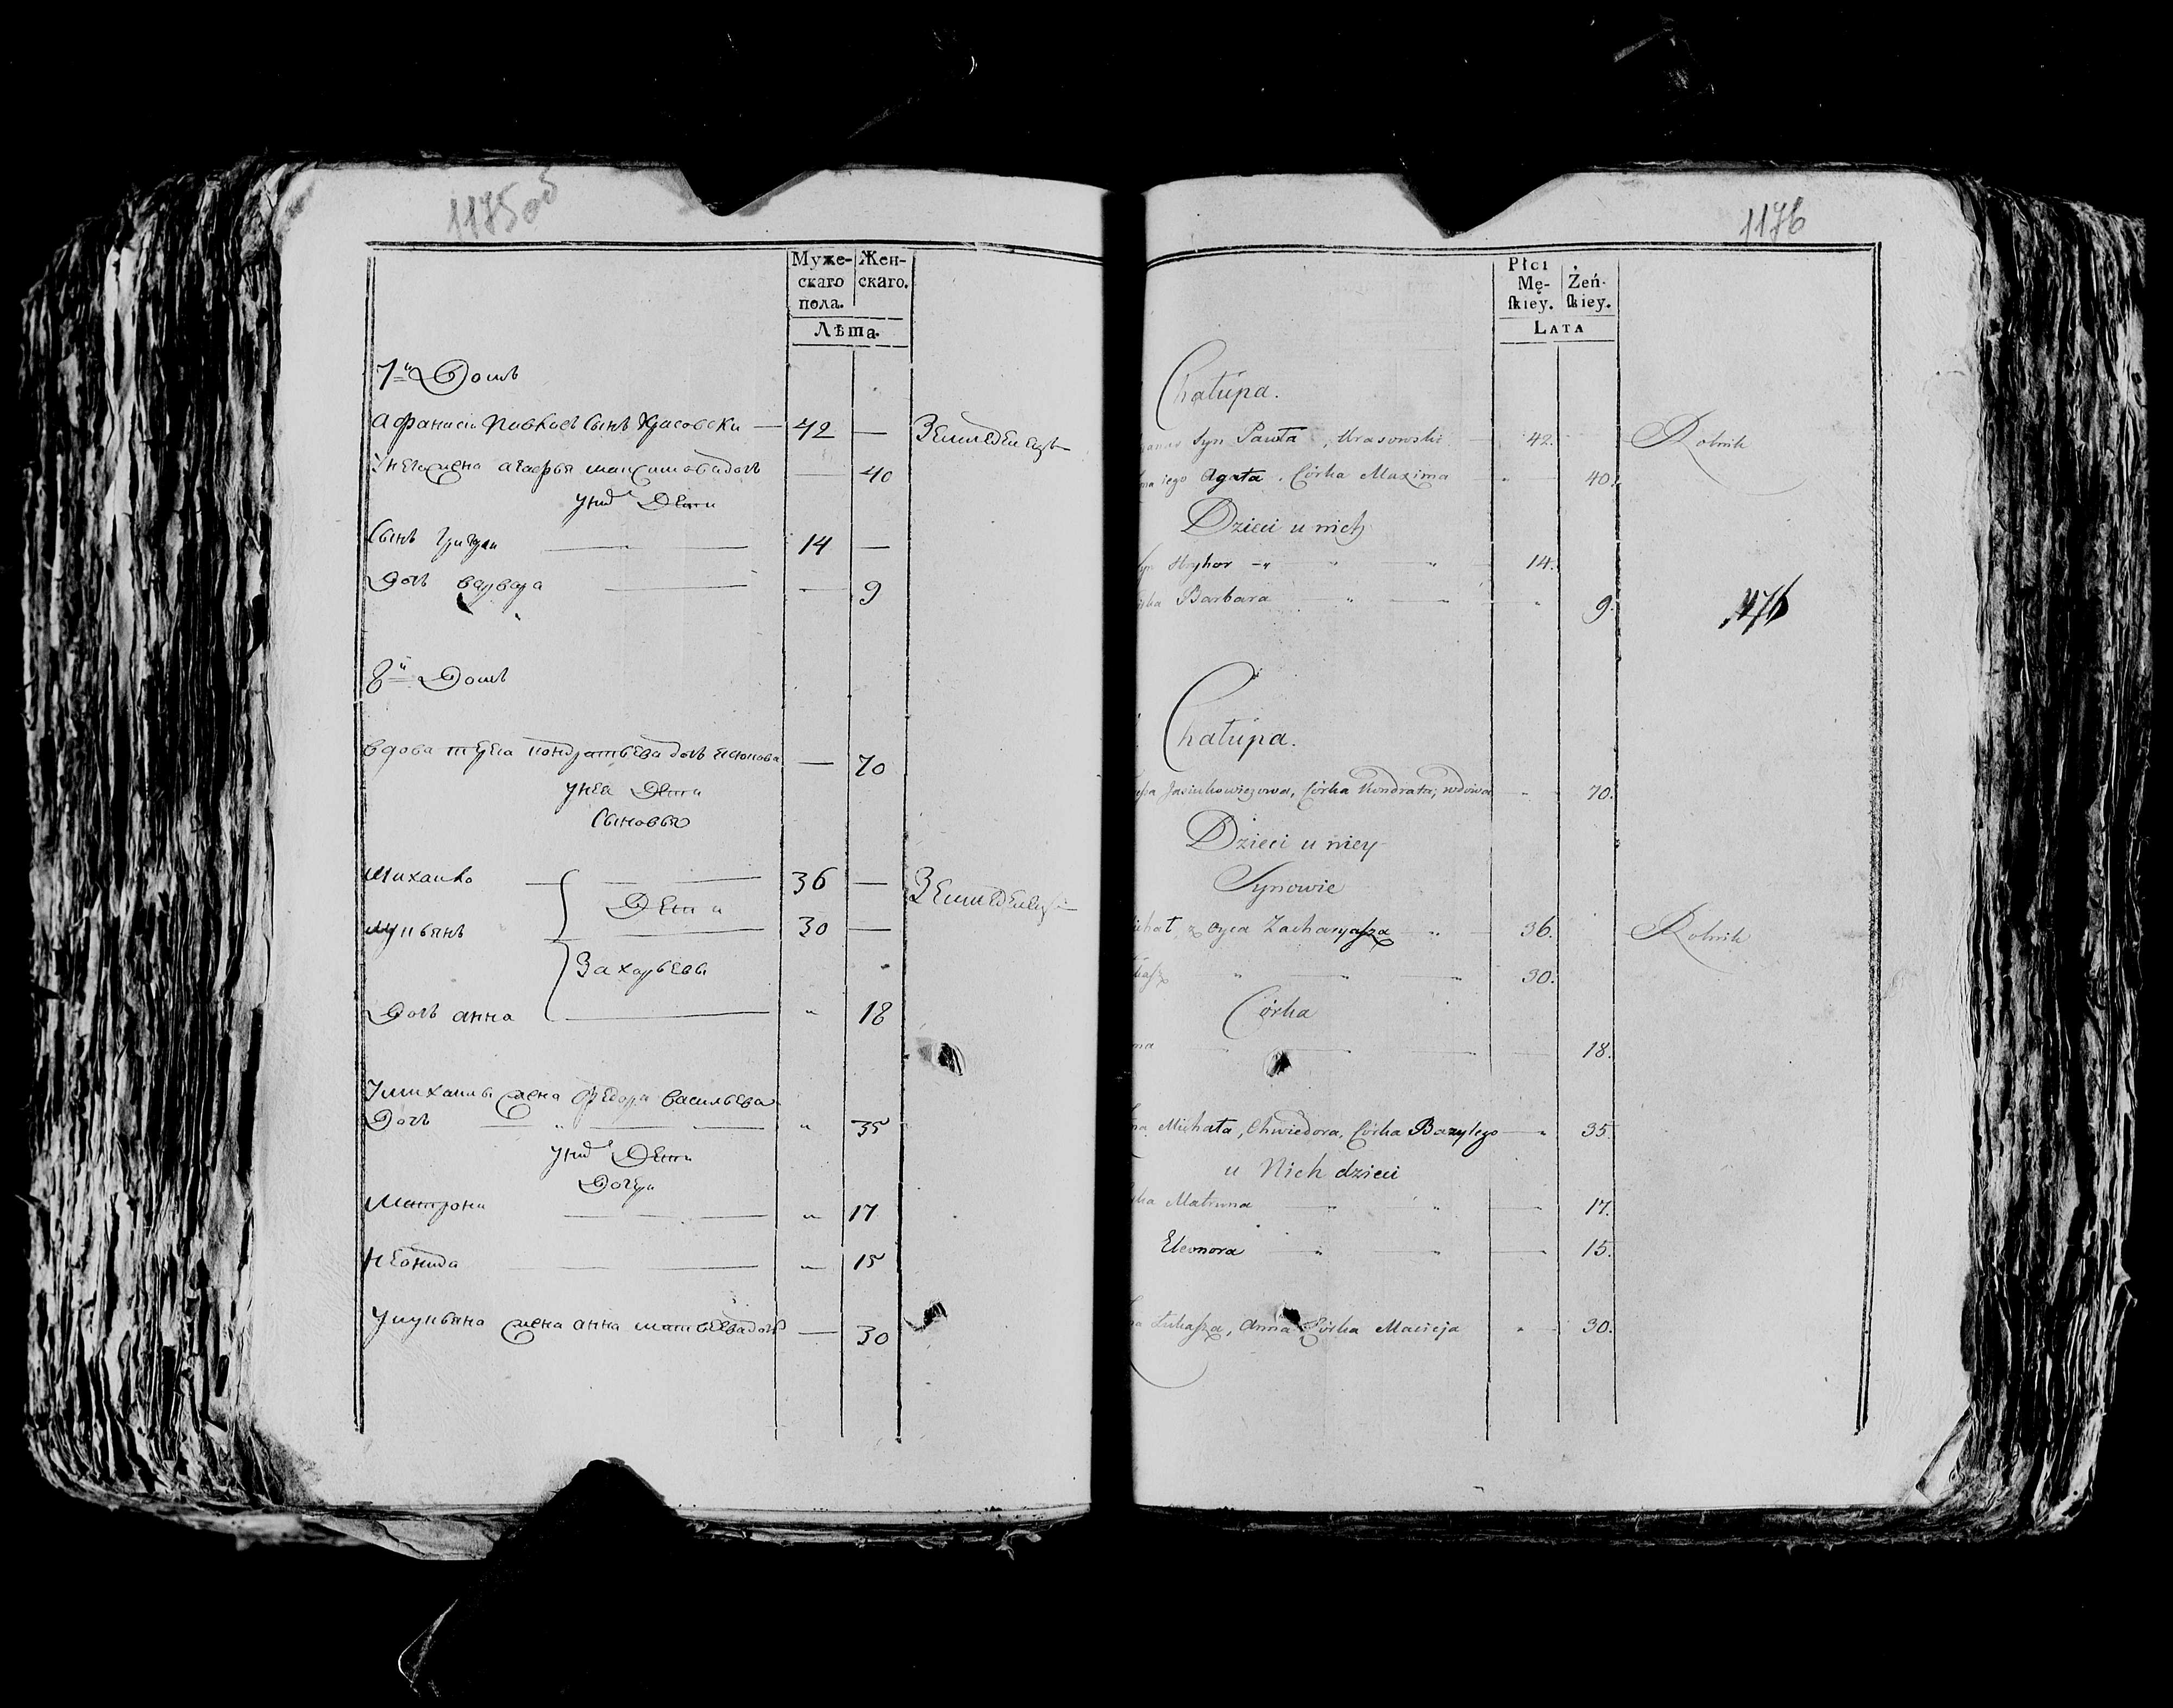 1175об
Муже-
скаго
пола.
Жен-
скаго.
Лѣта.
7й Домъ
Афанасій Павловъ Сынъ Красовски — 42 — Земледелецъ
У него жена агафья максимова дочь — 40
У них Дети
Сынъ Григори — 14 —
Дочь варвара — 9
8й Домъ
вдова кондратьева дочь — 70
У нея Дети
Сыновья
Михайло — 36 — Земледелецъ
Дети
30 —
Захарьевы
Дочь анна — " 18
У михаилы жена федора васильева
Дочь — " — " 35
У них Дети
Дочери
Матрона — " 17
15
жена анна матвеева дочь — 30
1176
Płci
Mę-
skiey.
Żeń-
skiey.
Lata
Chałupa.
Syn Pawła, Krasowski — 42. Rolnik
iego Agata, Córka Maxima — 40.
Dzieci u nich
Hryhor — 14.
Barbara — 9.
1176
Chałupa.
Jasiukowiczowa, Córka Kondrata, wdowa — 70.
Dzieci u niey
Synowie
z oyca Zacharyasza — 36. Rolnik
30.
Córka
18.
Michała, Chwiedora, Córka Bazylego — 35.
u Nich dzieci
Matruna — 17.
Eleonora — 15.
Łukasza, Anna Córka Macieja — 30.